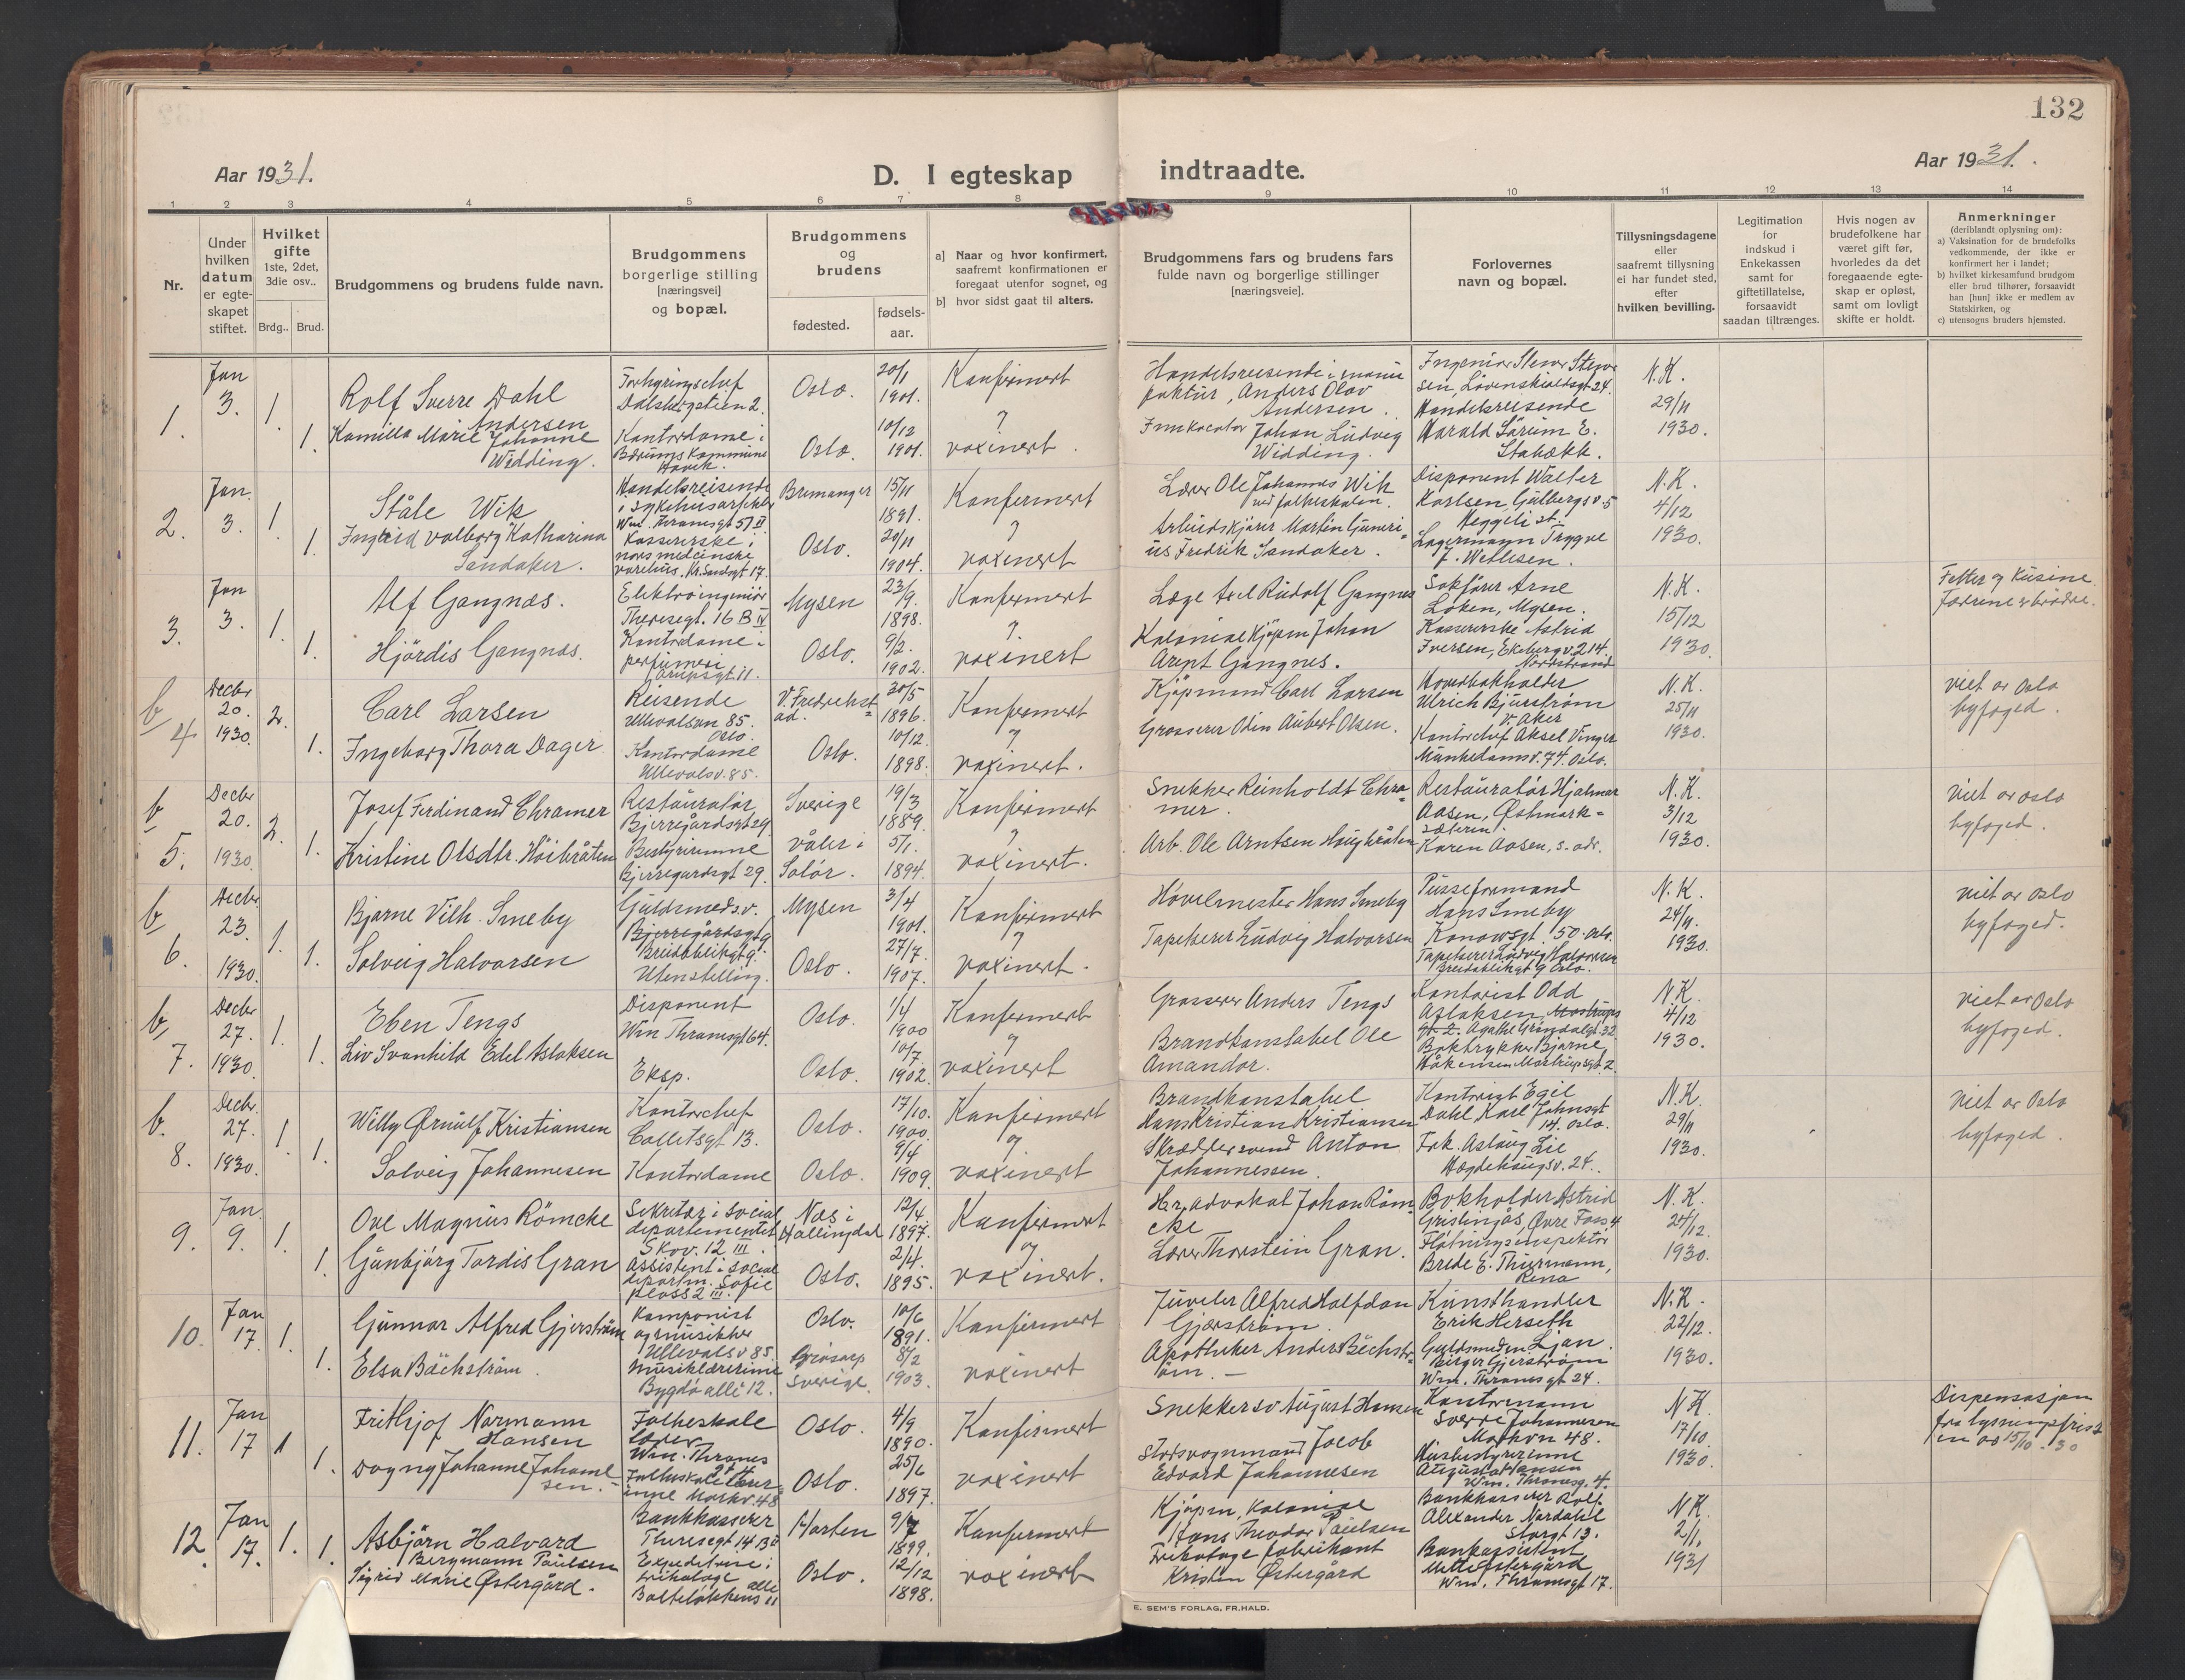 132
Aar 1931.
D. I egteskap indtraadte.
Aar 1931.
1 2 3 4 5 6 7 8 9 10 11 12 13 14
Nr.
Under hvilken datum er egte-skapet stiftet.
Hvilket gifte 1ste, 2det, 3die osv..
Brdg.. Brud.
Brudgommens og brudens fulde navn.
Brudgommens borgerlige stilling [næringsvei] og bopæl.
Brudgommens og brudens
fødested.
fødsels-aar.
a] Naar og hvor konfirmert, saafremt konfirmationen er foregaat utenfor sognet, og
b] hvor sidst gaat til alters.
Brudgommens fars og brudens fars fulde navn og borgerlige stillinger [næringsveie].
Forlovernes navn og bopæl.
Tillysningsdagene eller saafremt tillysning ei har fundet sted, efter hvilken bevilling.
Legitimation for indskud i Enkekassen samt for giftetillatelse, forsaavidt saadan tiltrænges.
Hvis nogen av brudefolkene har været gift før, hvorledes da det foregaaende egte-skap er opløst, samt om lovligt skifte er holdt.
Anmerkninger (deriblandt oplysning om):
a) Vaksination for de brudefolks vedkommende, der ikke er konfirmert her i landet;
b) hvilket kirkesamfund brudgom eller brud tilhører, forsaavidt han [hun] ikke er medlem av Statskirken, og
c) utensogns bruders hjemsted.
1. Jan 3. 1. 1.
Rolf Sverre Dahl Andersen
Dalsbergstien 2.
Oslo. 20/1 1901.
Konfirmert
Handelsreisende i manufaktur, Anders Olav Andersen.
Kamilla Marie Johanne Widding.
Kontordame i Bærums Kommune Høvik.
Oslo. 10/12 1901.
? vaxinert.
Johan Ludvig Widding.
Handelsreisende Harald Sørum E. Stabækk.
N.K. 29/11 1930.
2. Jan. 3. 1. 1.
Ståle Wik
Handelsreisende i sykehusartikler Wm. Thranesgt 57 II
Bremanger 15/11 1891.
Konfirmert
Lærer Ole Johannes Wik ved folkeskolen.
Disponent Walter Karlsen, Gulbergsv 5 Heggeli st.
Ingrid Valborg Katharina Sandaker.
Kassererske i norsmedcinske varehus. Kr. Sandsgt 17.
Oslo. 20/11 1904.
? vaxinert
Fredrik Sandaker.
Lagermann Trygve J. Wetlesen.
N.K. 4/12 1930.
3. Jan 3. 1. 1.
Alf Gangnæs.
Elektroingeniør Theresegt. 16 B IV
Mysen 23/9. 1898.
Konfirmert
Læge Axel Rudolf Gangnes
Sakfører Arne Løken, Mysen.
Hjördis Gangnæs.
Kontordame i perfumeri
Oslo. 9/2. 1902.
? vaxinert
Kolonialkjøpm Johan Arnt Gangnes.
Kassererske Astrid Iversen, Ekebergv. 214. Nordstrand
N.K. 15/12 1930.
Fetter og Kusine. Fædrene er brødre.
b 4 Decbr 20. 1930. 2. 1.
Carl Larsen
Reisende Ullevålsvn 85. Oslo.
V. Fredrikstad. 20/5 1896.
Konfirmert
Kjøpmand Carl Larsen
Hovedbokholder Ulrich Bjurstrøm V. Aker
Ingeborg Thora Dager
Kontordame Ullevålsv. 85.
Oslo. 10/12. 1898.
? vaxinert.
Grosserer Odin Aubert Olsen.
Kontorchef Aksel Vinger Munkedamsv. 74. Oslo.
N.K. 25/11 1930.
viet av Oslo byfoged.
b 5. Decbr 20. 1930 2. 1.
Josef Ferdinand Chramer
Restauratør Bjerregårdsgt 29
Sverige 19/3 1889.
Konfirmert
Snekker Reinholdt Chramer.
Restauratør Hjalmar Aasen, Østmarksæteren.
Kristine Olsdtr. Höibråten
Bestyrerinne Bjerregardsgt 29.
Våler i Solør. 5/1. 1894.
? vaxinert.
Arb. Ole Arntsen Haugbråten
Karen Aasen, s. adr.
N.K. 3/12 1930.
viet av oslo byfoged.
b 6. Decbr. 23. 1930. 1. 1.
Bjarne Vilh. Smeby
Guldsmedsv. Bjerregårdsgt 9
Mysen 3/4 1901.
Konfirmert
Høvelmester Hans Smeby
Pusseformand Hans Smeby Konowsgt. 50. Oslo.
Solveig Halvorsen
Breidablikgt 9. Utenstilling.
Oslo. 27/7 1907.
? vaxinert.
Tapetserer Ludvig Halvorsen
Tapetserer Ludvig Halvorsen Breidablikgt 9 Oslo.
N.K. 24/11. 1930.
viet av oslo byfoged.
b, 7. Decbr 27. 1930. 1. 1.
Eben Tengs
Disponent Wm Thranesgt 64.
Oslo. 1/4 1900
Konfirmert
Grosserer Anders Tengs
Kontorist Odd Aslaksen, Mostrups gt. 2. Agathe Grøndalsgt. 32
Liv Svanhild Edel Aslaksen
Eksp.
Oslo. 10/7. 1902.
? vaxinert
Brandkonstabel Ole Amandor.
Boktrykker Bjarne Håkensen Mostrupsgt. 2.
N.K. 4/12 1930.
viet av Oslo byfoged.
b. 8. Decbr. 27. 1930. 1. 1.
Willy Ørnulf Kristiansen
Kontorchef Colletsgt 13.
Oslo. 17/10. 1900.
Konfirmert
Brandkonstabel Hans Kristian Kristiansen
Kontorist Egil Dahl Karl Johnsgt 14. Oslo.
Solveig Johannesen
Kontordame
Oslo. 9/4 1909.
? vaxinert
Skræddersvend Anton Johannessen.
Frk. Aslaug Lie Hægdehaugsv. 24.
N.K. 29/11 1930.
viet av Oslo byfoged.
9. Jan. 9. 1. 1.
Ove Magnus Römcke
Sekretær i Social departementet Skov. 12 III.
Næs i Hallingdal 12/4 1897.
Konfirmert
H.r. advokat Johan Römcke
Bokholder Astrid Gristingås, Øvre Foss 4
Gunbjörg Tordis Gran
Assistent i Social departm. Sofie plass 2 III.
Oslo. 2/4. 1895.
? vaxinert.
Lærer Thorstein Gran.
Fløtningsinspektør Brede E. Thurmann, Rena
N.K. 24/12. 1930.
10. Jan 17. 1. 1.
Gunnar Alfred Gjerström
Komponist og musikker Ullevålsv 85.
Oslo. 10/6 1891.
Konfirmert
Juveler Alfred Halfdan Gjerström.
Kunsthandler Erik Herseth Ljan.
Elsa Bächström.
Musiklærerinne Bygdö allé 12.
Sverige. 8/2 1903.
vaxinert
Apotheker Anders Bächström. —
Guldsmeden Birger Gjerström Wm. Thranesgt 24.
N.K. 22/12. 1930.
11. Jan 17 1 1.
Frithjof Normann Hansen
Folkeskole lærer Wm. Thranes gt 4
Oslo. 4/9 1890.
Konfirmert
Snekkersv August Hansen
Kontormann Sverre Johannesen Markvn 48.
Dagny Johanne Johannesen. –
Folkeskolelærerinne Markv. 48
Oslo. 25/6 1897.
vaxinert
Storvognmand Jacob Edvard Johannesen
Husbestyrerinne Augusta Hansen Wm. Thranesg. 4.
N K. 17/10. 1930.
Dispensasjon fra lysningsfristen av 15/10-30
12. Jan 17. 1. 1.
Asbjörn Halvard Bergmann Paulsen
Bankkasserer Theresegt 14 B II
Horten 9/7 1899.
Konfirmert
Kjøpm, Kolonial Hans Theodor Paulsen
Bankkasserer Rolf Alexander Nordahl Storgt 13.
Sigrid Marie Østergård.
Expeditrise i trikotage Balteløkkens allé 11
Oslo. 12/12 1898.
vaxinert
Trikotage fabrikant Kristen Østergård
Bankassistent Mette Østergård Wm. Thranesgt 17.
N K. 2/1. 1931
E. SEM'S FORLAG, FR.HALD.